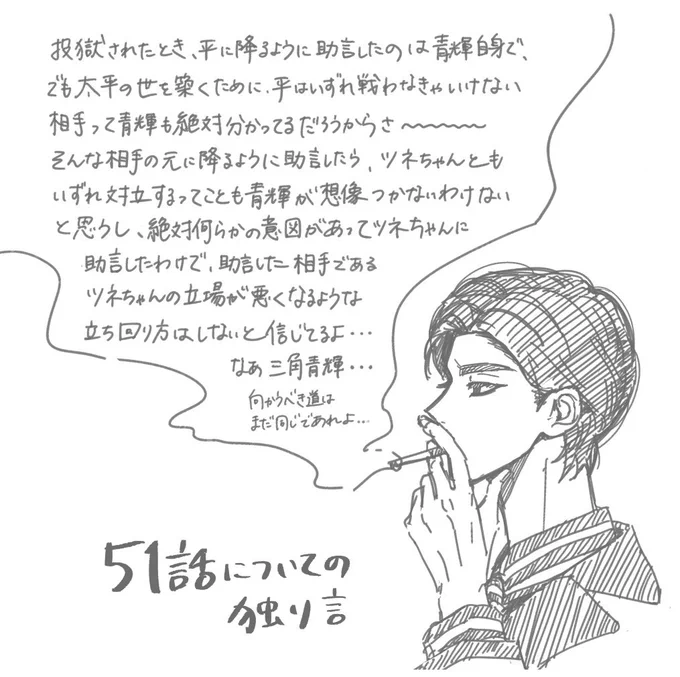 投獄されたとき、平に降るように助言したのは青輝自身で、
でも太平の世を築くために、平はいずれ戦わなきゃいけない
相手って青輝も絶対分かってるだろうからさ〜〜〜〜
そんな相手の元に降るように助言したら、ツネちゃんとも
いずれ対立するってことも青輝が想像つかないわけない
と思うし、絶対何らかの意図があってツネちゃんに
助言したわけで、助言した相手である
ツネちゃんの立場が悪くなるような
立ち回り方はしないと信じてるよ…
なぁ三角青輝…
向かうべき道は
まだ同じであれよ…
51話についての
独り言